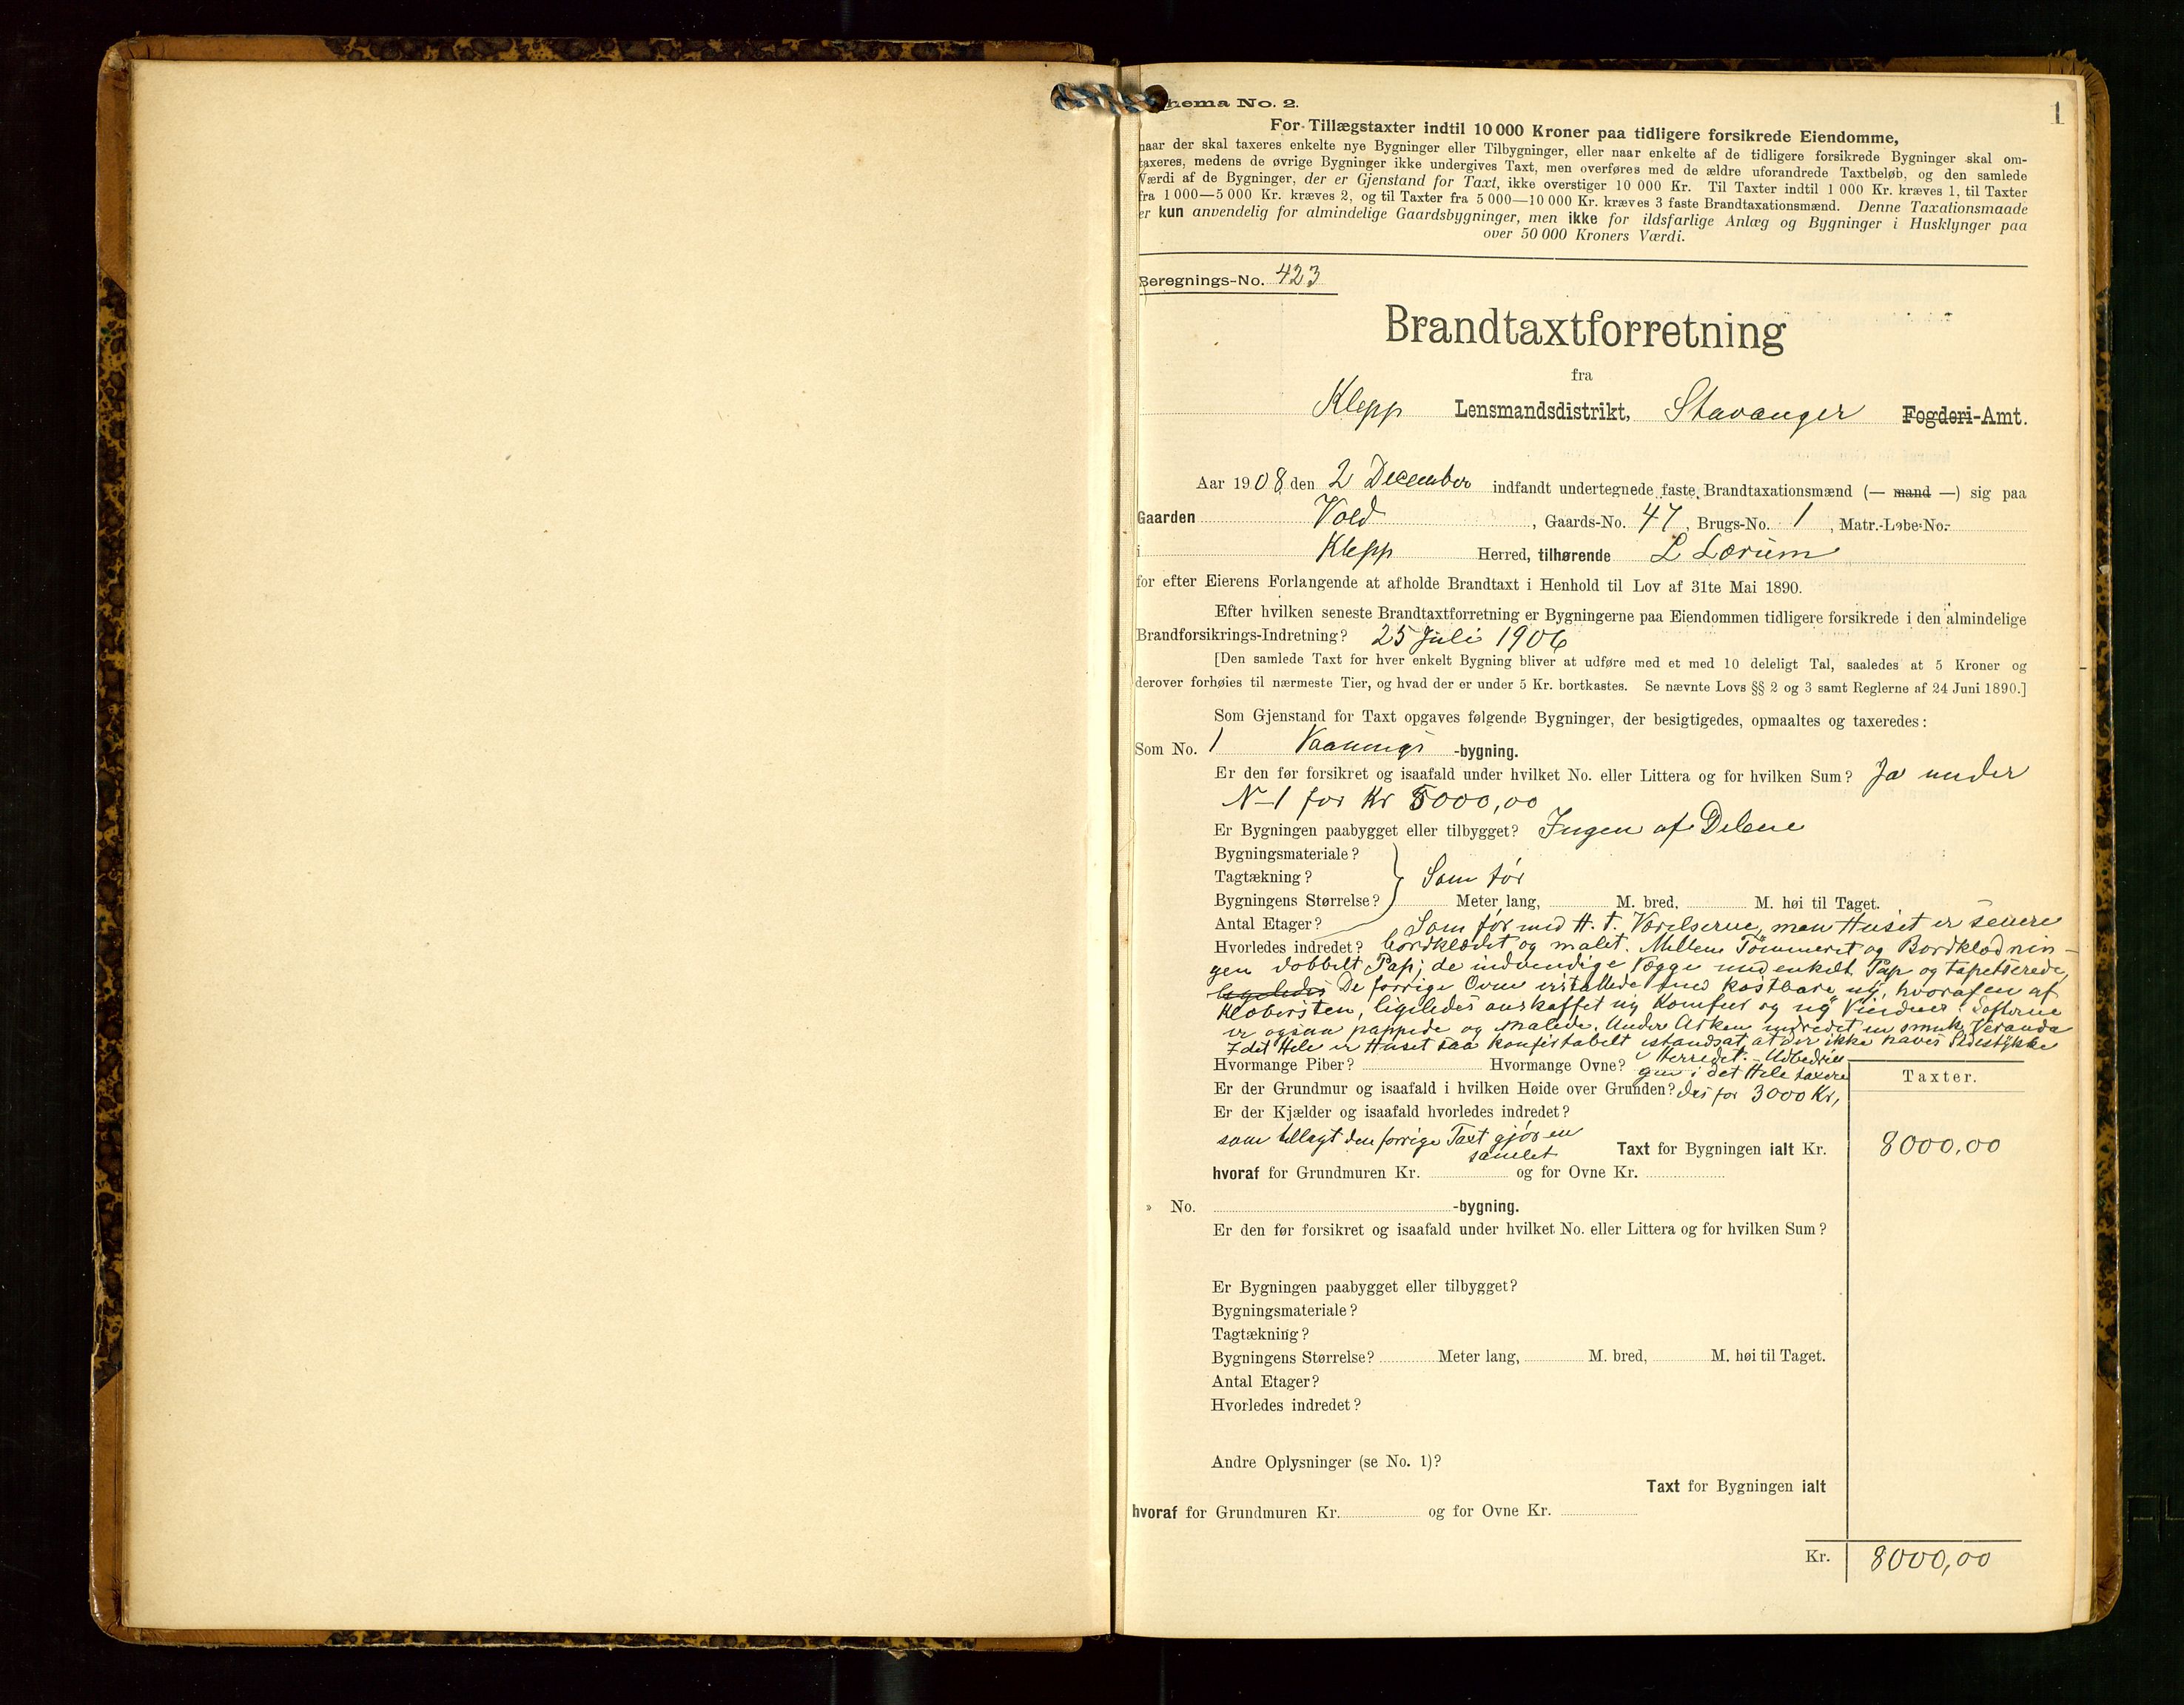 1
hema No. 2.
For Tillægstaxter indtil 10 000 Kroner paa tidligere forsikrede Eiendomme,
naar der skal taxeres enkelte nye Bygninger eller Tilbygninger, eller naar enkelte af de tidligere forsikrede Bygninger skal om-
taxeres, medens de øvrige Bygninger ikke undergives Taxt, men overføres med de ældre uforandrede Taxtbeløb, og den samlede
Værdi af de Bygninger, der er Gjenstand for Taxt, ikke overstiger 10 000 Kr. Til Taxter indtil 1 000 Kr. kræves 1, til Taxter
fra 1 000—5 000 Kr. kræves 2, og til Taxter fra 5 000—10 000 Kr. kræves 3 faste Brandtaxationsmænd. Denne Taxationsmaade
er kun anvendelig for almindelige Gaardsbygninger, men ikke for ildsfarlige Anlæg og Bygninger i Husklynger paa
over 50 000 Kroners Værdi.
Beregnings-No. 423
Brandtaxtforretning
fra
Klepp Lensmandsdistrikt, Stavanger Fogderi-Amt.
Aar 1908 den 2 December indfandt undertegnede faste Brandtaxationsmænd (— mand —) sig paa
Gaarden Vold, Gaards-No. 47, Brugs-No. 1, Matr.-Løbe-No.
i Klepp Herred, tilhørende L Lærum
for efter Eierens Forlangende at afholde Brandtaxt i Henhold til Lov af 31te Mai 1890.
Efter hvilken seneste Brandtaxtforretning er Bygningerne paa Eiendommen tidligere forsikrede i den almindelige
Brandforsikrings-Indretning? 25 Juli 1906
[Den samlede Taxt for hver enkelt Bygning bliver at udføre med et med 10 deleligt Tal, saaledes at 5 Kroner og
derover forhøies til nærmeste Tier, og hvad der er under 5 Kr. bortkastes. Se nævnte Lovs §§ 2 og 3 samt Reglerne af 24 Juni 1890.]
Som Gjenstand for Taxt opgaves følgende Bygninger, der besigtigedes, opmaaltes og taxeredes:
Som No. 1 Vaanings -bygning.
Er den før forsikret og isaafald under hvilket No. eller Littera og for hvilken Sum? Ja under
No 1 for Kr 5000,00
Er Bygningen paabygget eller tilbygget? Ingen af Delene
Bygningsmateriale?
Tagtækning? } Som før
Bygningens Størrelse? Meter lang, M. bred, M. høi til Taget.
Antal Etager? Som før med H. t. Værelserne, men Huset er senere
Hvorledes indredet? bordklædet og malet. Mellem Tømmeret og Bordklædnin-
gen dobbelt Pap; de indvendige Vægge med enkelt Pap og tapetserede,
ligeledes De forrige Ovne erstattede med kostbare ny, hvoraf en af
Klæbersten, ligeledes anskaffet ny Komfur og ny Vinduer. Lofterne
er ogsaa pappede og malede. Under Arken indredet en smuk Veranda
I det Hele er Huset saa konfortabelt istandsat, at der ikke haves Sidestykke
Hvormange Piber? Hvormange Ovne? i Herredet. Udbedrin
gen i det Hele taxere
Er der Grundmur og isaafald i hvilken Høide over Grunden? des for 3000 Kr,
Taxter.
Er der Kjælder og isaafald hvorledes indredet?
som tillagt den forrige Taxt gjør en
samlet Taxt for Bygningen ialt Kr. 8000,00
hvoraf for Grundmuren Kr. og for Ovne Kr.
» No. -bygning.
Er den før forsikret og isaafald under hvilket No. eller Littera og for hvilken Sum?
Er Bygningen paabygget eller tilbygget?
Bygningsmateriale?
Tagtækning?
Bygningens Størrelse? Meter lang, M. bred, M. høi til Taget.
Antal Etager?
Hvorledes indredet?
Andre Oplysninger (se No. 1)?
Taxt for Bygningen ialt
hvoraf for Grundmuren Kr. og for Ovne Kr.
Kr. 8000,00